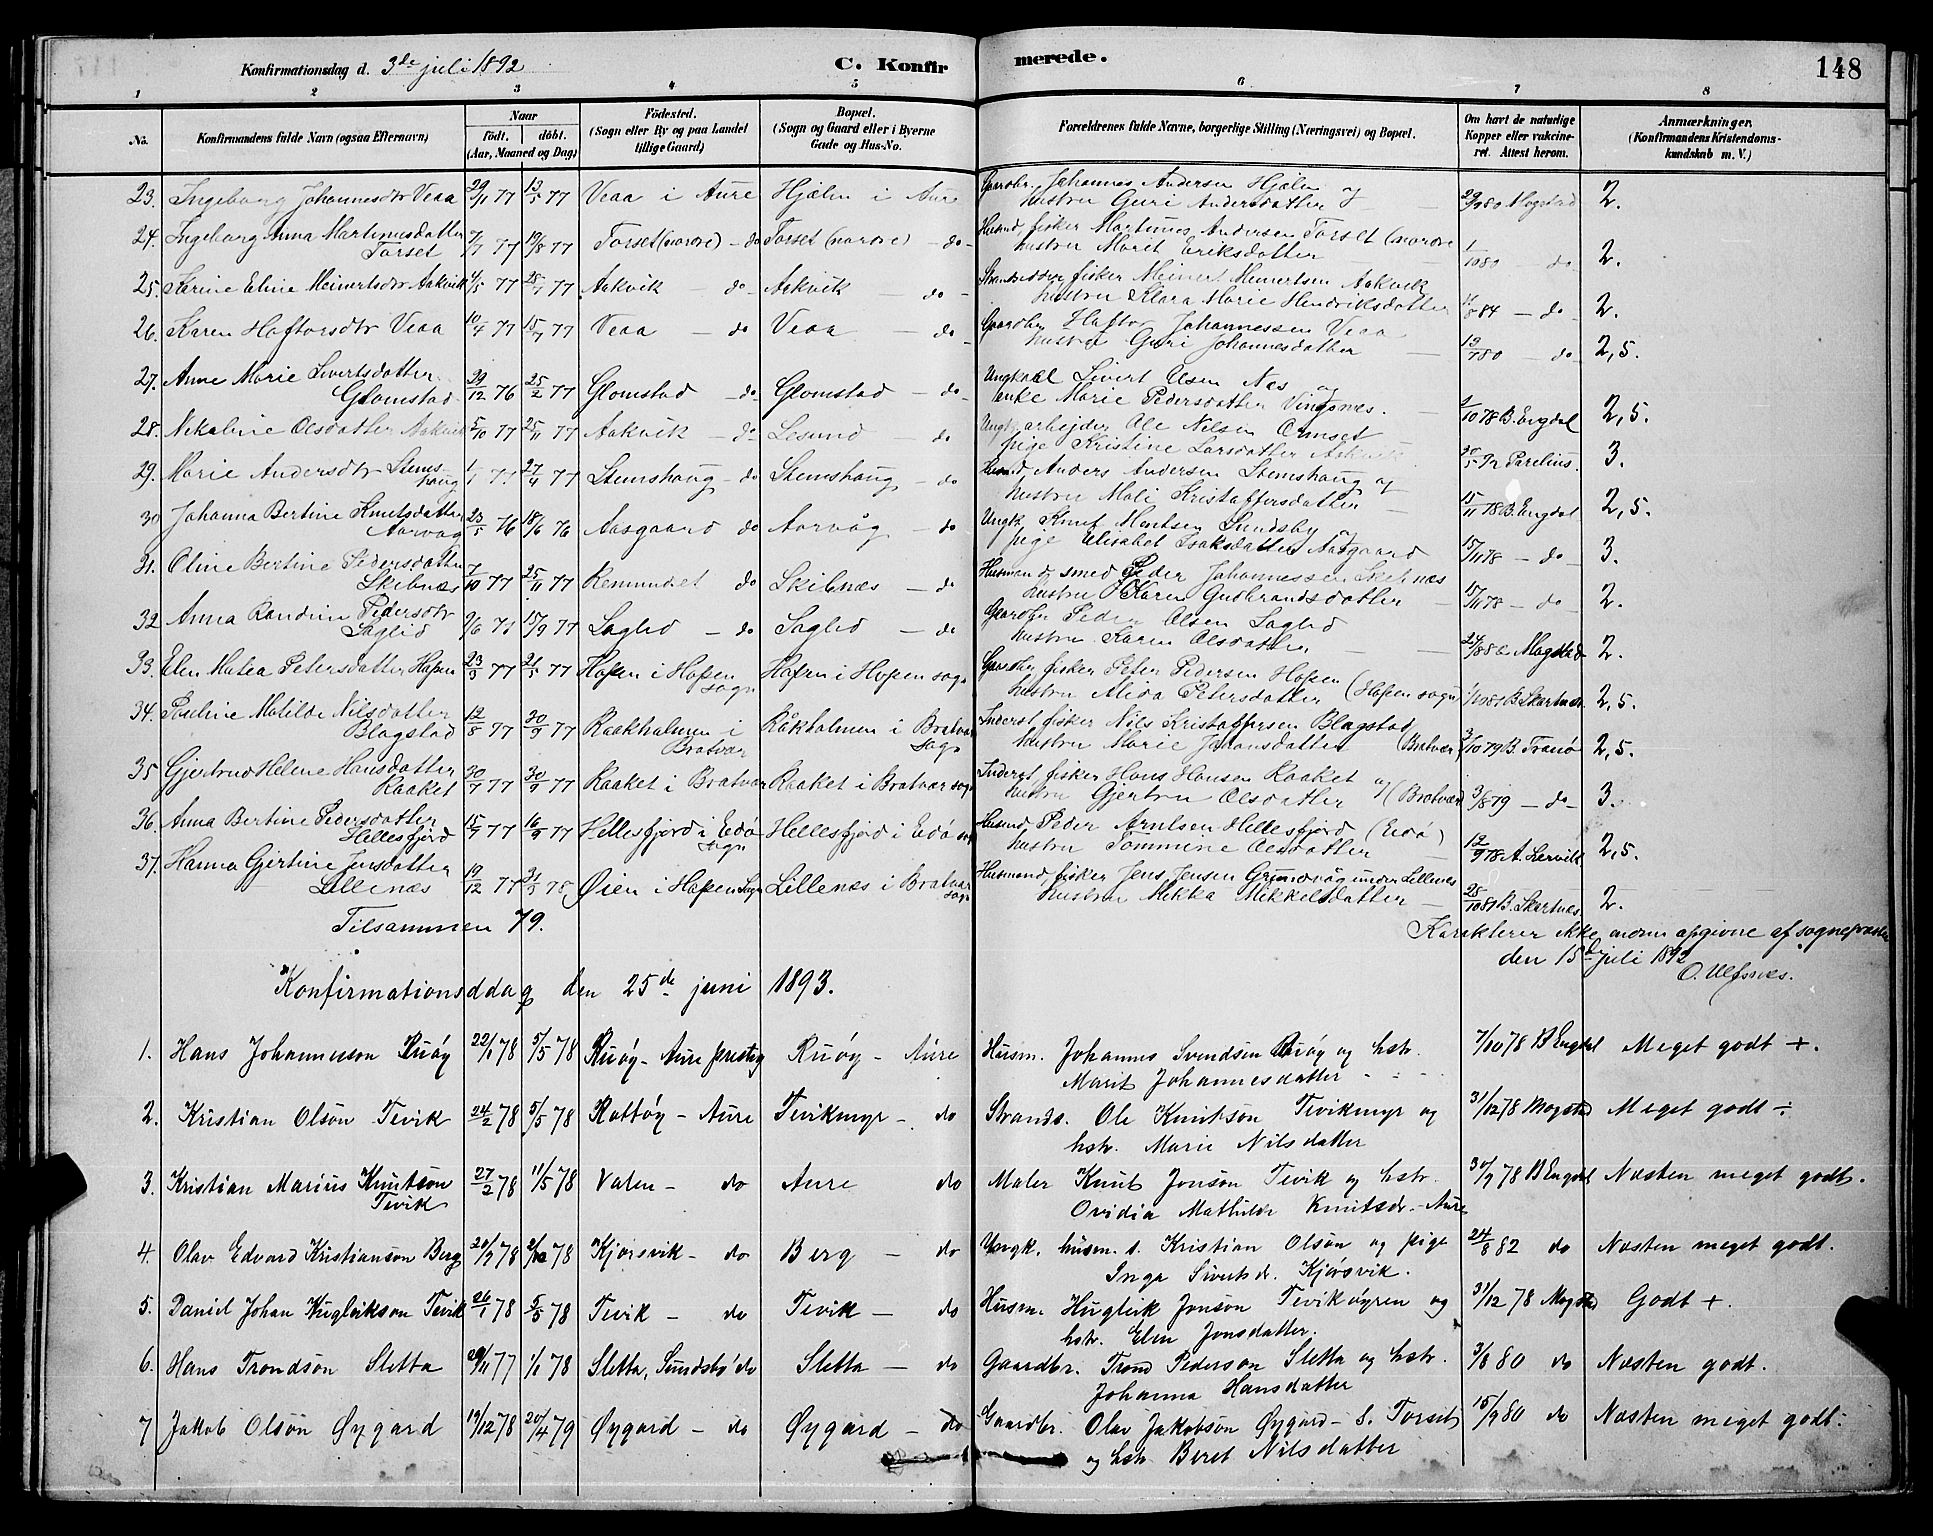 Konfirmationsdag d. 3de juli 1892 C. Konfirmerede. 148
1 2 3 4 5 6 7 8
No. Konfirmandens fulde Navn (ogsaa Efternavn) Naar født. døbt. (Aar, Maaned og Dag) Fødested. (Sogn eller By og paa Landet tillige Gaard) Bopæl. (Sogn og Gaard eller i Byerne Gade og Hus-No. Forældrenes fulde Navne, borgerlige Stilling (Næringsvei) og Bopæl. Om havt de naturlige Kopper eller vakcineret. Attest herom. Anmærkninger. (Konfirmandens Kristendomskundskab m. V.)
23. Ingeborg Johannesdtr Veaa 29/11 77 13/5 77 Veaa i Aure Hjælm i Aure Gaardbr. Johannes Andersen Hjelm og
hustru Guri Andersdatter 80 Mogstad 2.
24. Ingeborg Anna Martinusdatter 7/7 77 19/8 77 Torset (nordre) - do Torset (nordre) - do - Husmd, fisker Martinus Andersen Torset (nordre
Torset hustru Marit Eriksdatter 1/10 80 do 2.
25. Karine Eline Meinertsdtr Aakvik 4/5 77 77 Aakvik - do - Aakvik - do - Strandsidder, fisker Meinert Meinertsen Aakvik
hustru Klara Marie Hendriksdatter 84 - do - 2.
26. Karen Haftorsdtr Veaa 10/4 77 15/7 77 Veaa - do Veaa - do Gaardbr Haftor Johannessen Veaa
hustru Guri Johannesdatter 80 - do - 2,5.
27. Anne Marie Sivertsdatter 29/12 76 25/2 77 Glomstad - do - Glomstad - do - Ungkarl Sivert Olsen Næs og
Glomstad enke Marie Pedersdatter Vingsnes. 9/10 78 B. Engdal 2,5.
28. Nikoline Olsdatter Aakvik 5/10 77 25/11 77 Aakvik - do Lesund - do Ungk. arbejder Ole Nilsen Ormset
pige Kristine Larsdatter Aakvik 30/5 92 Parelius. 3.
29. Marie Andersdtr Stems- 1/1 77 Stemshaug - do Stemshaug - do Husmd, Anders Andersen Stemshaug og
haug hustru Mali Kristoffersdatter 15/11 78 B. Engdal 2,5.
30 Johanna Bertine Knutsdatter 23/5 76 18/6 76 Aasgaard do Aarvåg - do Ungk. Knut Monsen Sundsby og
Aarvåg pige Elisabet Isaksdatter Aasgaard 15/11 78 - do 3.
31. Oline Bertine Pedersdatter 7/10 77 25/11 77 Remmuset do Skibnæs - do Husmand, smed Peder Johannessen Skibnæs
Skibnæs hustru Karen Gudbrandsdatter 15/11 78 - do - 2.
32 Anna Randine Pedersdtr 9/6 77 15/9 77 Saglid - do Saglid - do Gaardbr Peder Olsen Saglid
Saglid hustru Karen Olsdatter 24/8 82 Mogstad 2.
33. Elen Malea Petersdatter Hopen 23/5 77 77 Hopen i Hopen sogn Hopen i Hopen sogn Gaardbr, fisker Peter Pedersen Hopen
hustru Alida Petersdatter (Hopen sogn) 81 B. Skartnes 2,5.
34. Pauline Matilde Nilsdatter 12/8 77 30/9 77 Raakholmen i Bratvær Råkholmen i Bratvær sogn Inderst, fisker Nils Kristoffersen Blagstad
Blagstad hustru Marie Johansdatter (Bratvær) 79 B. Tranø 2,5.
35 Gjertrud Helene Hansdatter 30/7 77 30/9 77 Raaket i Bratvær Raaket i Bratvær sogn Inderst, fisker Hans Hansen Raaket og
Raaket hustru Gjertru Olsdatter (Bratvær) 3/8 79 - do - 3.
36. Anna Bertine Pedersdatter 15/7 77 16/9 77 Hellesfjord i Edø sogn Hellesfjord i Edø sogn Husmd Peder Arntsen Hellesfjord (Edø)
Hellesfjord hustru Tommine Olsdatter 12/9 78 A. Lervik 2,5.
37. Hanna Gjertine Jensdatter 19/12 77 78 Øien i Hopen Sogn Lillenæs i Bratvær sogn Husmand, fisker Jens Jensen Grundvåg under Lillenes
Lillenæs hustru Mekka Mikkelsdatter 28/10 81 B. Skartnes 2.
Tilsammen 79.
Karakterer ikke opgivne af sognepræsten
den 15de juli 1892
O. Ulfsnes.
Konfirmationsddag den 25de juni 1893.
1. Hans Johannesson Ruøy 22/1 78 5/5 78 Ruøy - Aure prestg Ruøy - Aure Husm. Johannes Svendsen Ruøy og hstr. 7/10 78 B Engdal Meget godt +.
Marit Johannesdatter
2. Kristian Olsøn Tevik 24/2 78 5/5 78 Rottøy - Aure Tevikmyr - do Strands. Ole Knutsøn Tevikmyr og 31/12 78 Mogstad Meget godt ÷
hstr. Marie Nilsdatter
3. Kristian Marius Knutsøn 27/2 78 11/5 78 Valen - do Aure do Maler Knut Jonsøn Tevik og hstr. 30/9 78 B Engdal Næsten meget godt.
Tevik Ovidia Mathilde Knutsdr. - Aure
4. Olav Edvard Kristianson Berg 78 78 Kjørsvik - do Berg - do Ungk. husm. s. Kristian Olsøn og pige 24/8 82 do Næsten meget godt.
Inga Sivertsdr. Kjørsvik.
5. Daniel Johan Hugleikson Tevik 26/1 78 5/5 78 Tevik - do Tevik - do Husm. Hugleik Jonsøn Tevikøyren og 31/12 78 Mogstad Godt +.
hstr. Elen Jonsdatter.
6. Hans Trondsøn Sletta 77 1/1 78 Sletta, Sundsbø do Sletta - do Gaardbr. Trond Pederson Sletta og hstr. 3/8 80 do Næsten godt.
Johanna Hansdatter
7 Jakob Olsøn Øygard 19/12 78 20/4 79 Øygard - do Øygard - do Gaardbr. Olav Jakobsøn Øygard - S. Torset 15/9 80 do Næsten meget godt.
og hstr Beret Nilsdatter